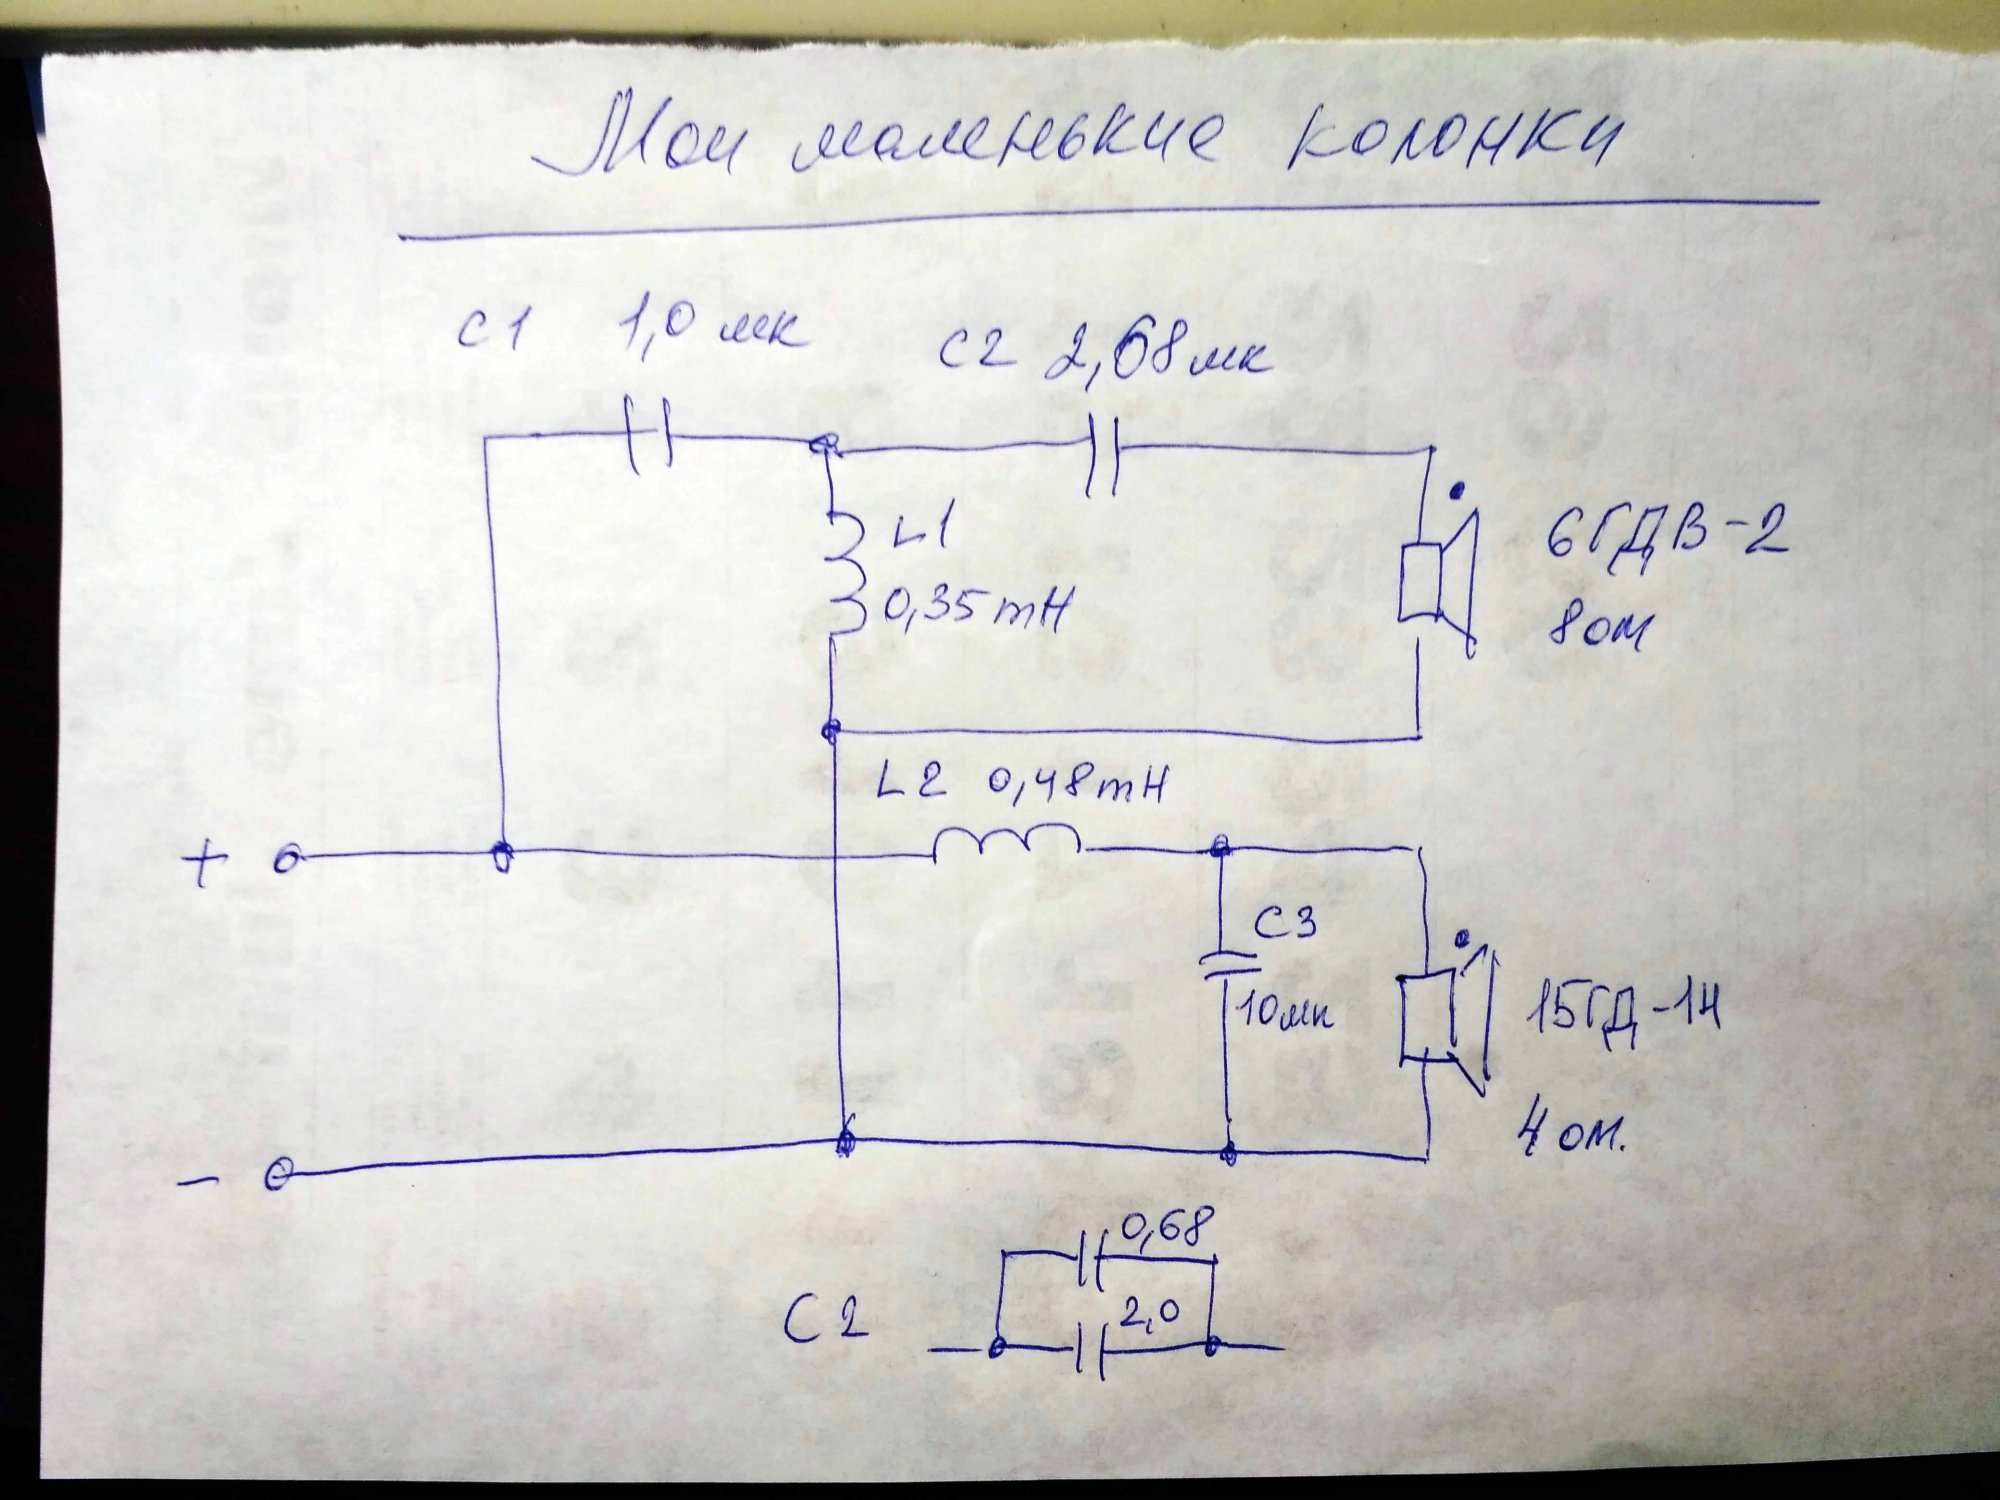 Мои маленькие колонки
C1 1,0 мк
C2 2,68 мк
L1
0,35 mH
6ГДВ-2
8 ом
L2 0,48 mH
+
C3
10 мк
15ГД-14
4 ом.
-
0,68
C2
2,0